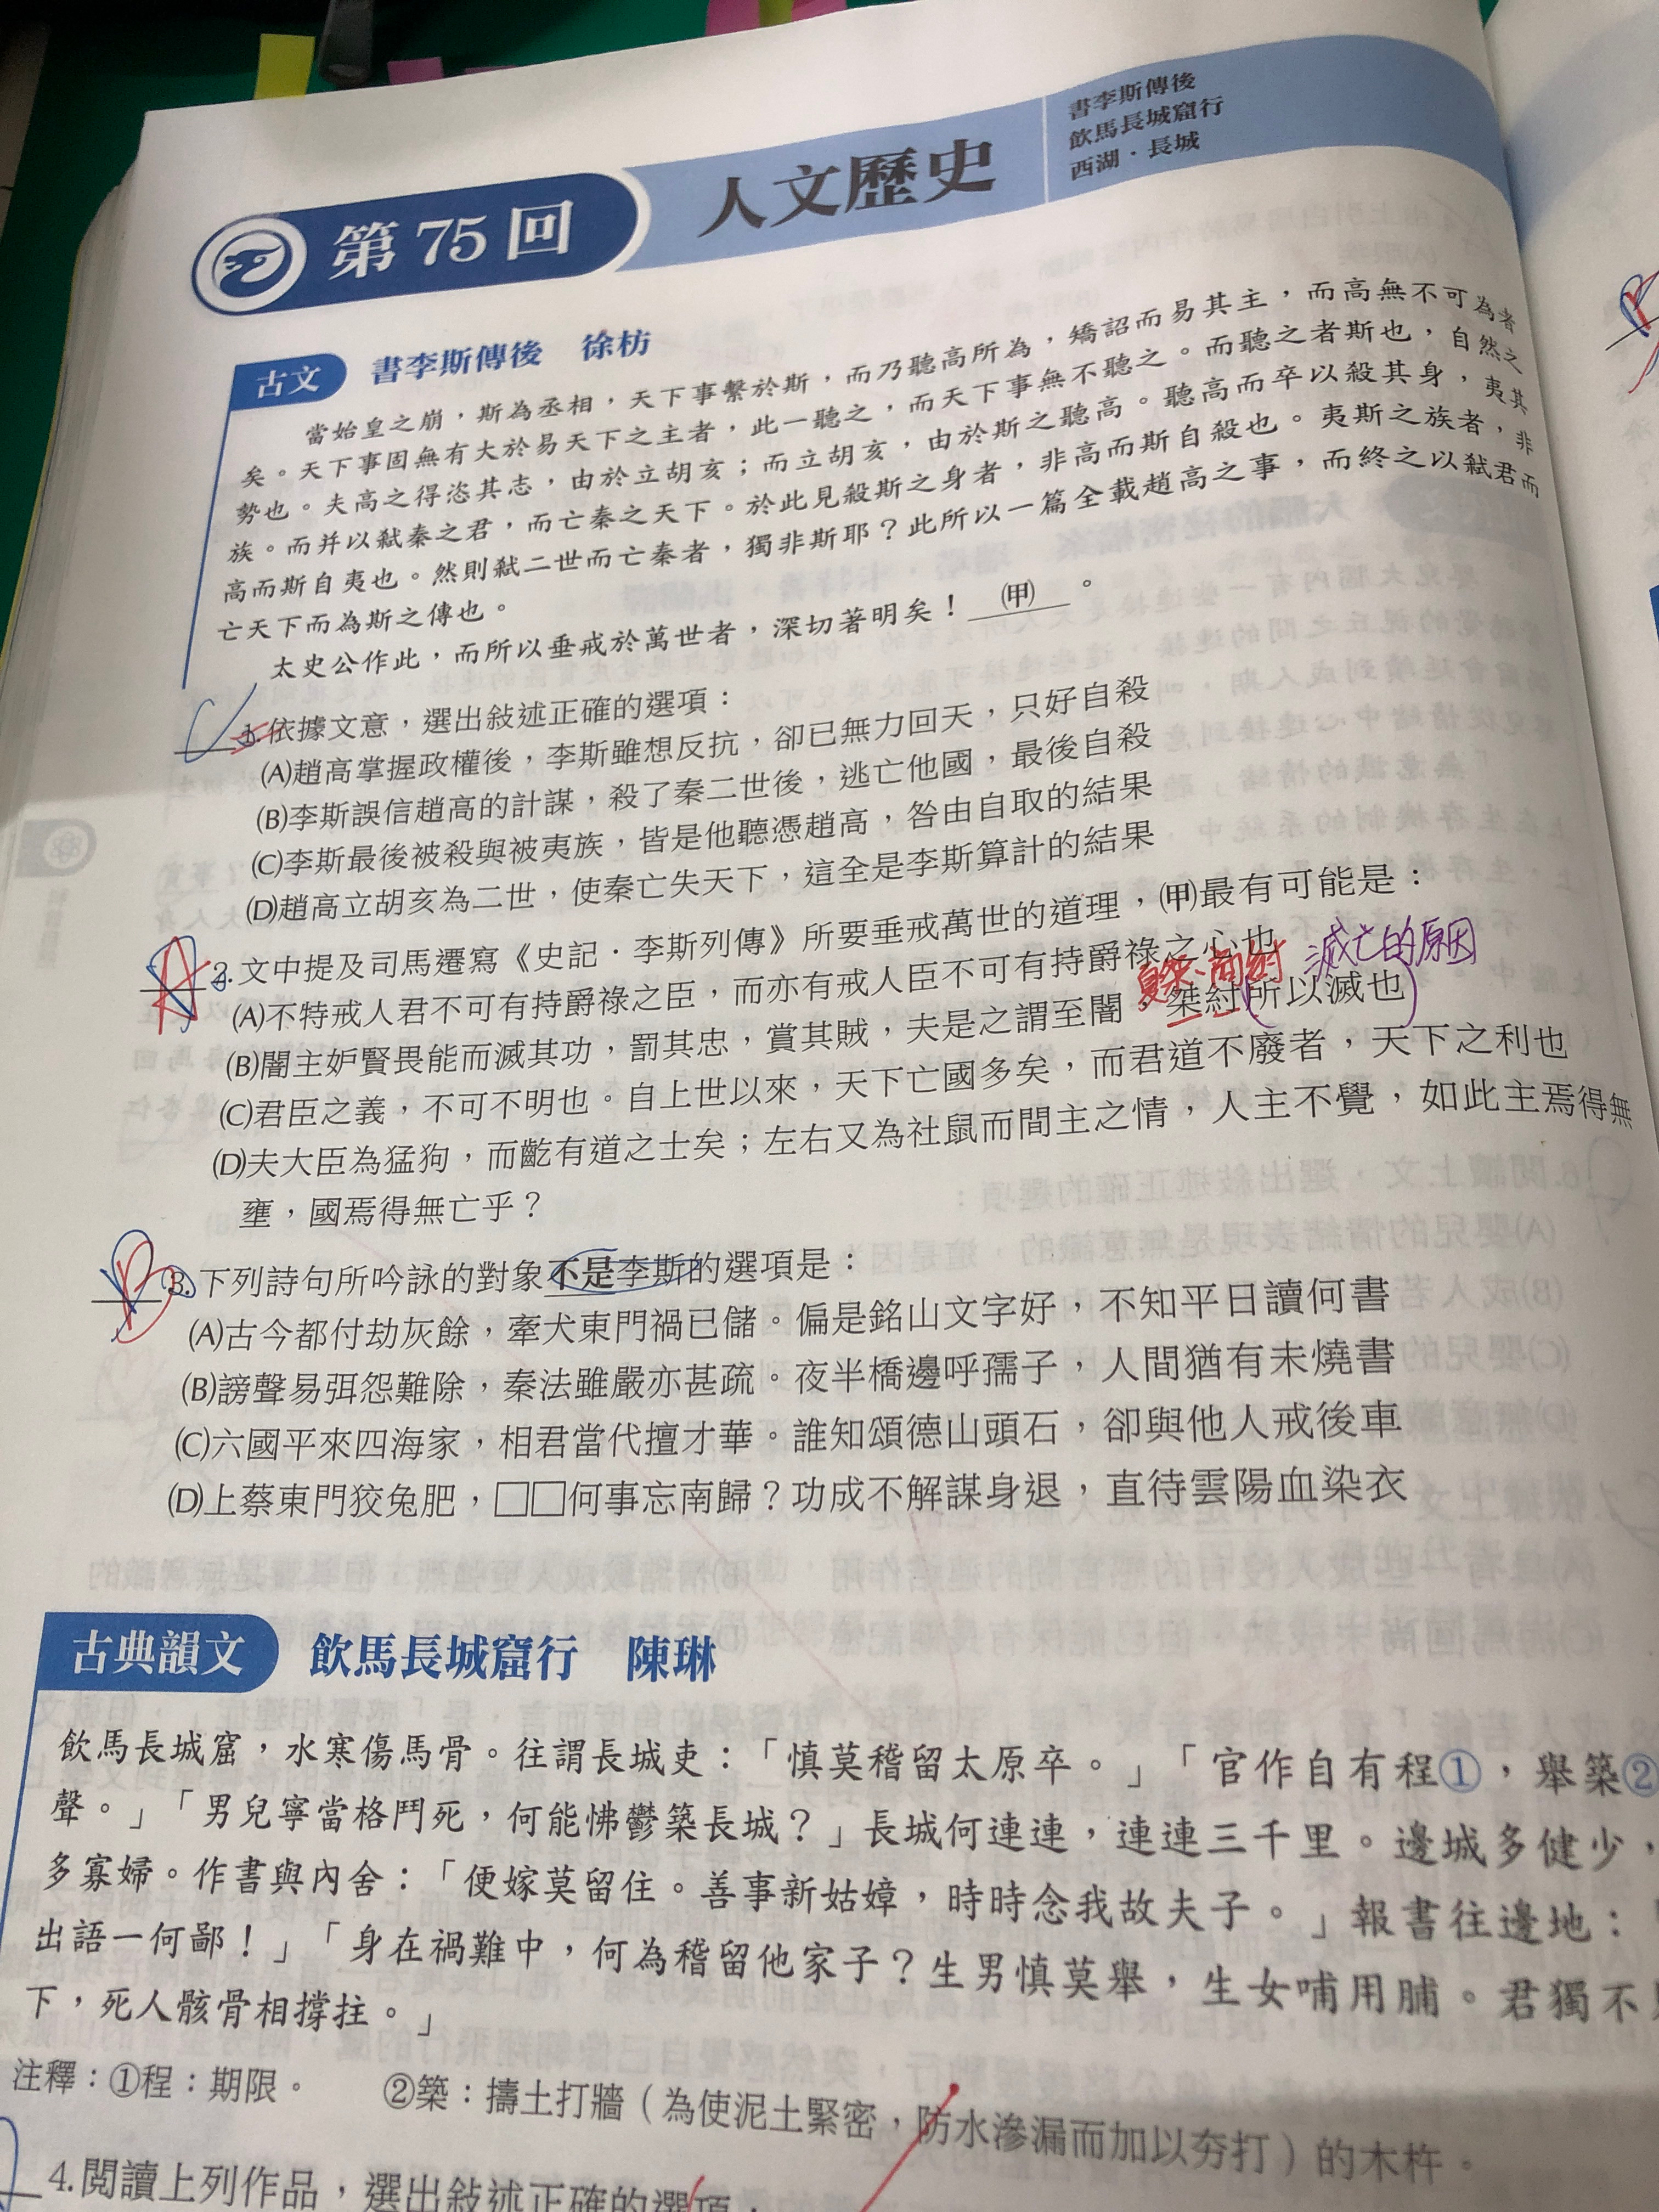 書李斯傳後
飲馬長城窟行
西湖．長城
第75回
人文歷史
古文 書李斯傳後 徐枋
當始皇之崩，斯為丞相，天下事繫於斯，而乃聽高所為，矯詔而易其主，而高無不可為者
矣。天下事固無有大於易天下之主者，此一聽之，而天下事無不聽之。而聽之者斯也，自然之
勢也。夫高之得恣其志，由於立胡亥；而立胡亥，由於斯之聽高。聽高而卒以殺其身，夷其
族。而并以弒秦之君，而亡秦之天下。於此見殺斯之身者，非高而斯自殺也。夷斯之族者，非
高而斯自夷也。然則弒二世而亡秦者，獨非斯耶？此所以一篇全載趙高之事，而終之以弒君而
亡天下而為斯之傳也。
太史公作此，而所以垂戒於萬世者，深切著明矣！ ㈙ 。
C 1.依據文意，選出敍述正確的選項：
(A)趙高掌握政權後，李斯雖想反抗，卻已無力回天，只好自殺
(B)李斯誤信趙高的計謀，殺了秦二世後，逃亡他國，最後自殺
(C)李斯最後被殺與被夷族，皆是他聽憑趙高，咎由自取的結果
(D)趙高立胡亥為二世，使秦亡失天下，這全是李斯算計的結果
A 2.文中提及司馬遷寫《史記．李斯列傳》所要垂戒萬世的道理，㈙最有可能是：
(A)不特戒人君不可有持爵祿之臣，而亦有戒人臣不可有持爵祿之心也
夏桀、商紂 滅亡的原因
(B)闇主妒賢畏能而滅其功，罰其忠，賞其賊，夫是之謂至闇，桀紂所以滅也
(C)君臣之義，不可不明也。自上世以來，天下亡國多矣，而君道不廢者，天下之利也
(D)夫大臣為猛狗，而齕有道之士矣；左右又為社鼠而間主之情，人主不覺，如此主焉得無
壅，國焉得無亡乎？
B 3.下列詩句所吟詠的對象不是李斯的選項是：
(A)古今都付劫灰餘，牽犬東門禍已儲。偏是銘山文字好，不知平日讀何書
(B)謗聲易弭怨難除，秦法雖嚴亦甚疏。夜半橋邊呼孺子，人間猶有未燒書
(C)六國平來四海家，相君當代擅才華。誰知頌德山頭石，卻與他人戒後車
(D)上蔡東門狡兔肥，□□何事忘南歸？功成不解謀身退，直待雲陽血染衣
古典韻文 飲馬長城窟行 陳琳
飲馬長城窟，水寒傷馬骨。往謂長城吏：「慎莫稽留太原卒。」「官作自有程①，舉築②
聲。」「男兒寧當格鬥死，何能怫鬱築長城？」長城何連連，連連三千里。邊城多健少，
多寡婦。作書與內舍：「便嫁莫留住。善事新姑嫜，時時念我故夫子。」報書往邊地：「
出語一何鄙！」「身在禍難中，何為稽留他家子？生男慎莫舉，生女哺用脯。君獨不
下，死人骸骨相撐拄。」
注釋：①程：期限。 ②築：擣土打牆（為使泥土緊密，防水滲漏而加以夯打）的木杵。
4.閱讀上列作品，選出敍述正確的選項：